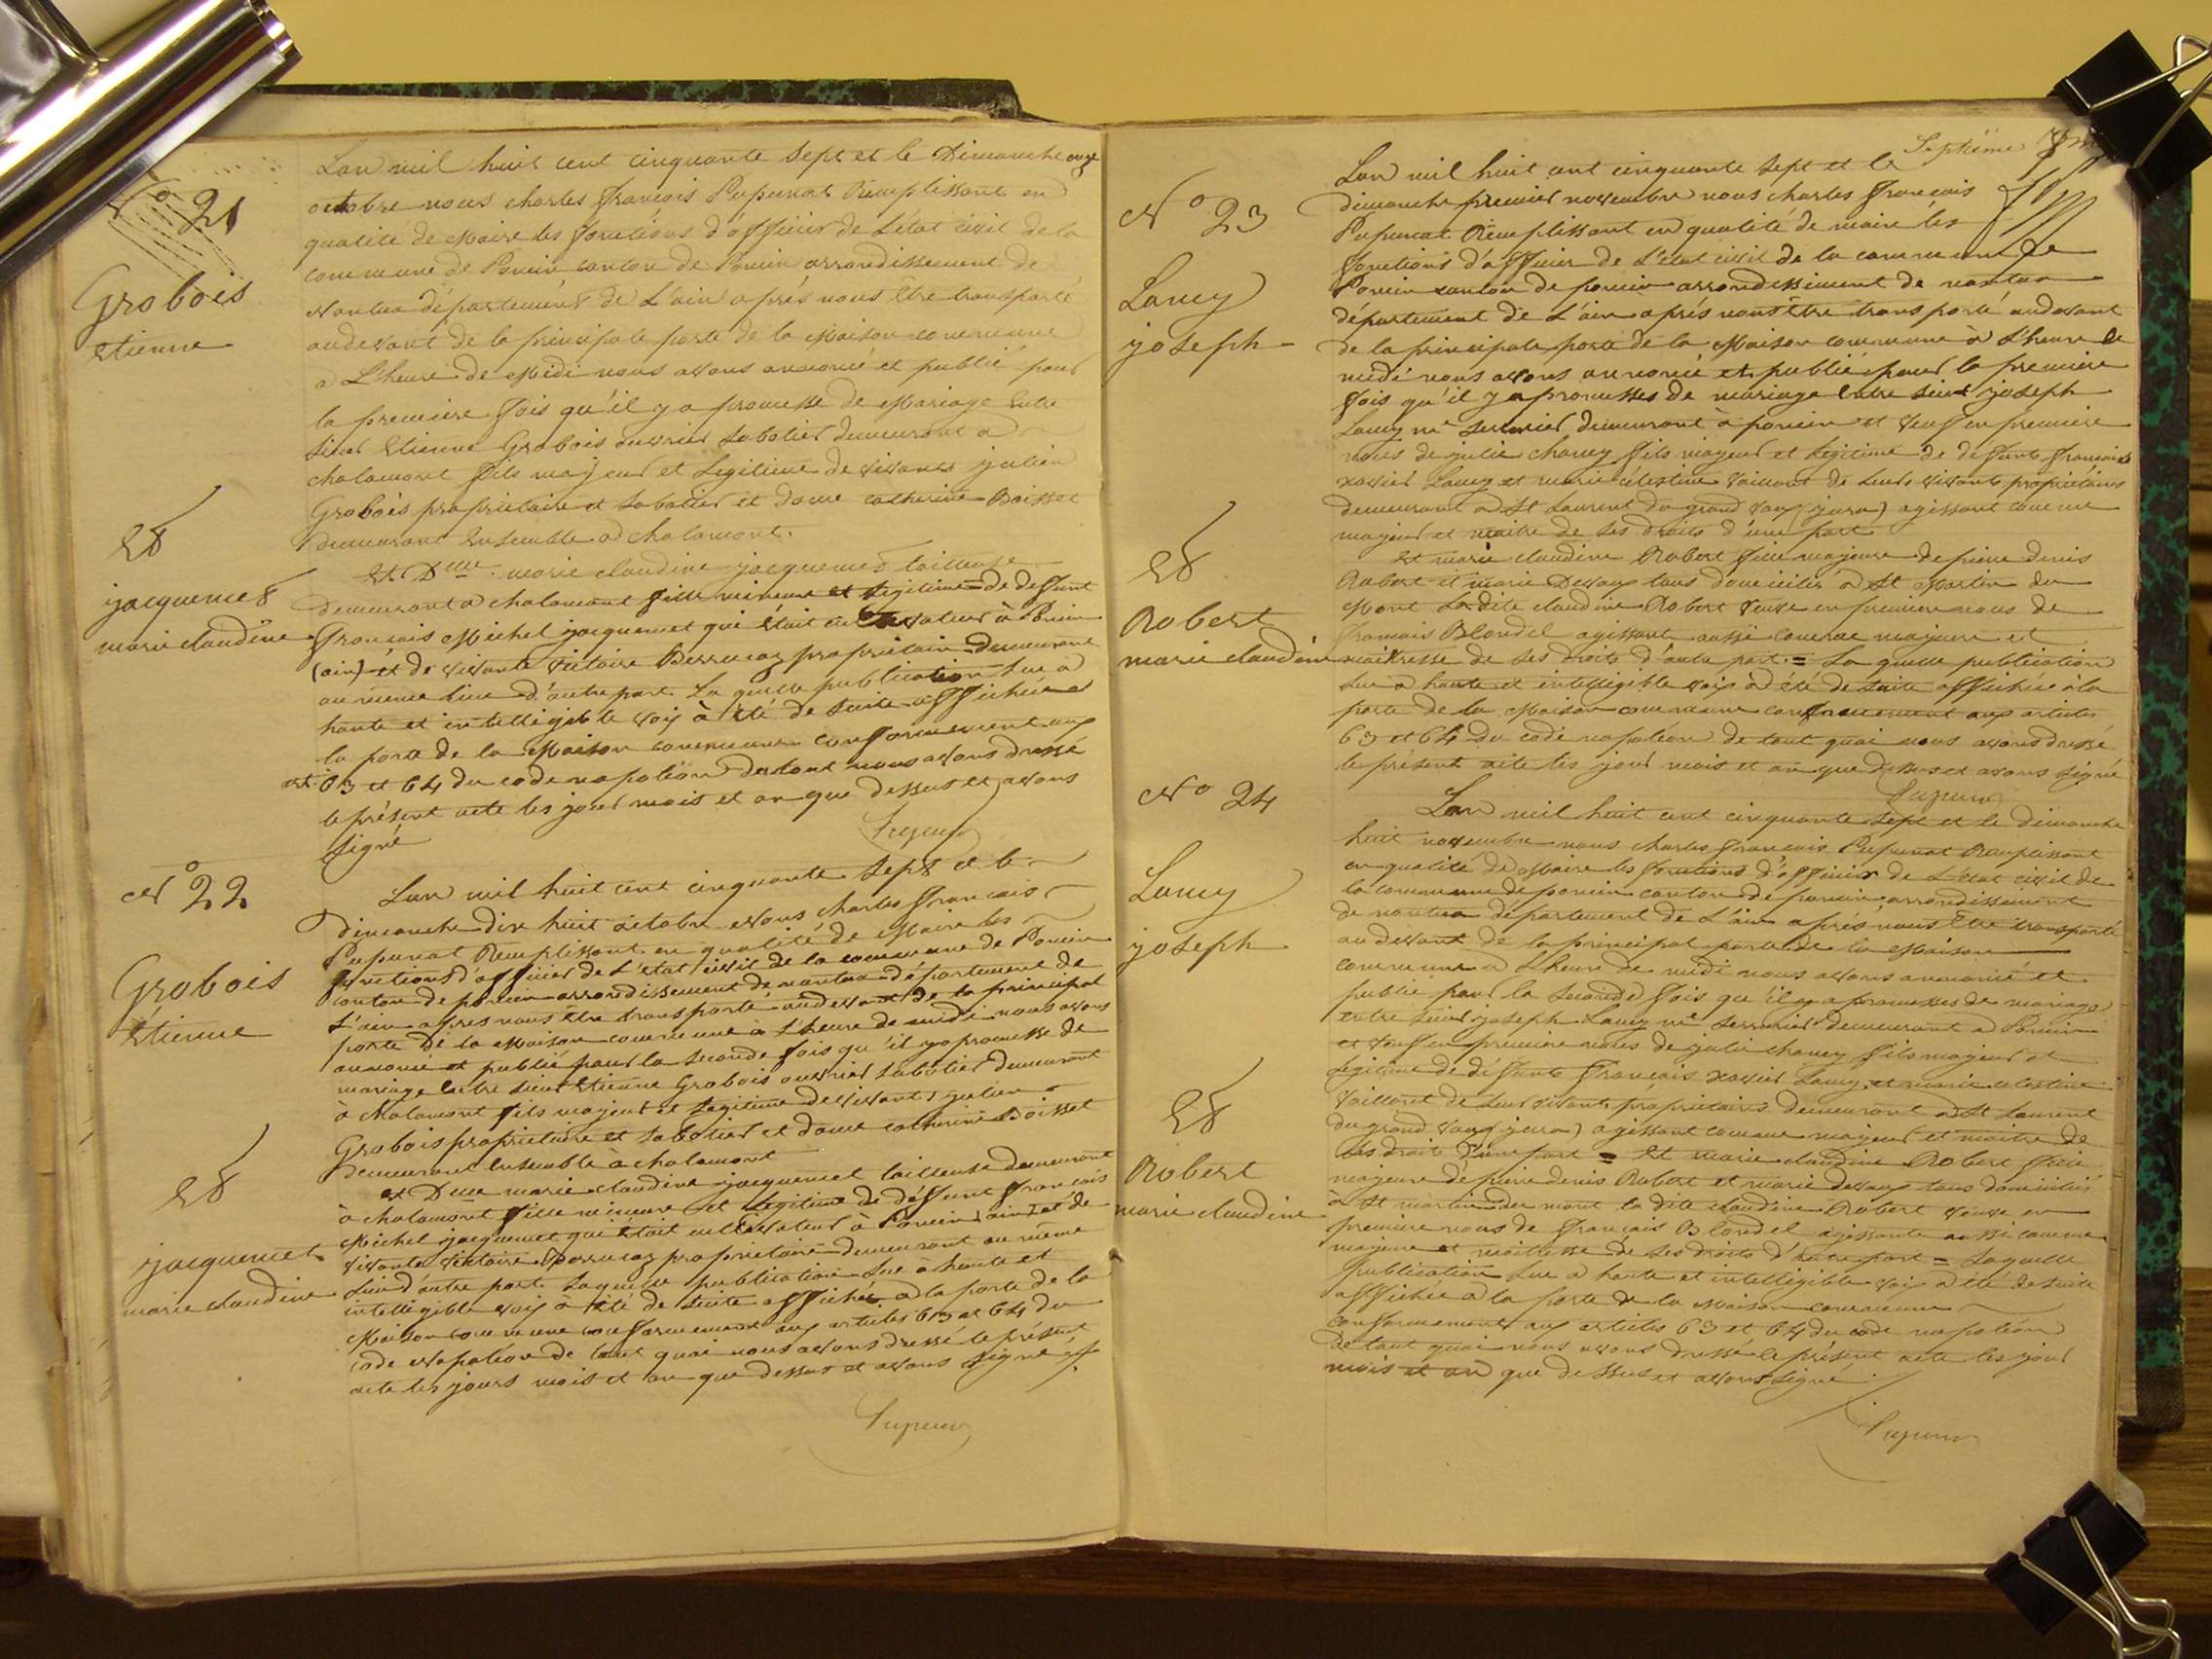 N° 21
Grobois
Etienne
Et
jacquemet
marie claudine
L'an mil huit cent cinquante sept et le Dimanche onze
octobre nous charles françois Pupunat Remplissant en
qualité de Maire les fonctions d'officier de L'état civil de la
commune de Poncin canton de Poncin arrondissement de
Nantua département de L'ain après nous être transporté
au devant de la principale porte de la Maison commune
à L'heure de Midi nous avons annoncé et publié pour
la première fois qu'il y a promesse de Mariage Entre
sieur Etienne Grobois ouvrier Sabotier demeurant a
chalamont fils majeur et Legitime de vivants julien
Grobois propriétaire et Sabotier et dame catherine Boisset
demeurant Ensemble a chalamont.
Et Dlle marie claudine jacquemet tailleuse
demeurant a chalamont fille mineure et Legitime de defunt
François Michel jacquemet qui était cultivateur à Poncin
(ain) et de vivante victoire propriétaire demeurant
au même lieu d'autre part. La quelle publication Lue a
haute et intelligible voix à été de suite affichée a
la porte de la Maison commune conformement aux
art. 63 et 64 du code napoléon de tout nous avons dressé
le présent acte les jour mois et an que dessus et avons
signé
Pupunat
N° 22
Grobois
Etienne
Et
jacquemet
marie claudine
L'an mil huit cent cinquante sept et le
Dimanche dix huit octobre Nous charles francois
Pupunat Remplissant en qualité de Maire les
fonctions d'officier de L'état civil de la commune de Poncin
canton de poncin arrondissement de nantua département de
L'ain apres nous être transporté au devant de la principal
porte de la Maison commune à L'heure de midi nous avons
annoncé et publié pour la Seconde fois qu'il y a promesse de
mariage Entre sieur Etienne Grobois ouvrier Sabotier demeurant
à chalamont fils majeur et Légitime de vivants julien
Grobois propriétaire et Sabotier et dame catherine Boisset
demeurant Ensemble à chalamont
et Dlle marie claudine jacquemet tailleuse demeurant
à chalamont fille mineure et Légitime de défunt François
Michel jacquemet qui était cultivateur à Poncin (ain) et de
vivante victoire propriétaire demeurant au même
Lieu d'autre part. Laquelle publication Lue a haute et
intelligible voix a été de suite affichée a la porte de la
Maison commune conformement aux articles 63 et 64 du
code Napoléon de tout quoi nous avons dressé le présent
acte les jours mois et an que dessus et avons signé
Pupunat
Septième
N° 23
Lamy
joseph
Et
Robert
marie claudine
L'an mil huit cent cinquante sept et le
dimanche premier novembre nous charles francois
Pupunat Remplissant en qualité de maire les
fonctions d'officier de L'etat civil de la commune de
Poncin canton de poncin arrondissement de nantua
département de L'ain après nous être transporté au devant
de la principale porte de la Maison commune à L'heure de
midi nous avons annoncé et publié pour la premiere
fois qu'il y a promesses de mariage Entre sieur joseph
Lamy me serrurier demeurant à poncin et veuf en premiere
noces de julie chancy fils majeur et legitime de defunts françois
xavier Lamy et marie célestine vaillant de Leurs vivants propriétaires
demeurant à St Laurent du grand vaux (jura) agissant comme
majeur et maitre de ses droits d'une part
Et marie claudine Robert fille majeure de pierre denis
Robert et marie Devaux tous domiciliés à St Martin du
Mont La dite claudine Robert veuve en premiere noces de
francois Blondel agissant aussi comme majeure et
maîtresse de ses droits d'autre part = La quelle publication
Lue a haute et intelligible voix à été de suite affichée à la
porte de la Maison commune conformement aux articles
63 et 64 du code napoléon de tout quoi nous avons dressé
le présent acte les jour mois et an que dessus et avons signé
Pupunat
N° 24
Lamy
joseph
Et
Robert
marie claudine
L'an mil huit cent cinquante sept et le dimanche
huit novembre nous charles francois Pupunat Remplissant
en qualité de Maire les fonctions d'officier de L'état civil de
la commune de poncin canton de poncin arrondissement
de nantua département de L'ain après nous être transporté
au devant de la principal porte de la Maison
commune a L'heure de midi nous avons annoncé et
publié pour la Seconde fois qu'il y a promesses de mariage
entre sieur joseph Lamy me serrurier demeurant a Poncin
et veuf en premiere noces de julie chancy fils majeur et
Légitime de défunts François xavier Lamy et marie celestine
vaillant de Leur vivants propriétaires demeurant a St Laurent
du grand vaux (jura) agissant comme majeur et maitre de
ses droits d'une part = Et marie claudine Robert fille
majeure de pierre denis Robert et marie devaux tous domiciliés
à St martin du mont la dite claudine Robert veuve en
premiere noces de francais Blondel agissante aussi comme
majeure et maitresse de ses droits d'autre part = Laquelle
publication Lue a haute et intelligible voix a été de suite
affichée a la porte de la Maison commune
conformement aux articles 63 et 64 du code napoléon
de tout quoi nous avons dressé le présent acte les jour
mois et an que dessus et avons signé
Pupunat